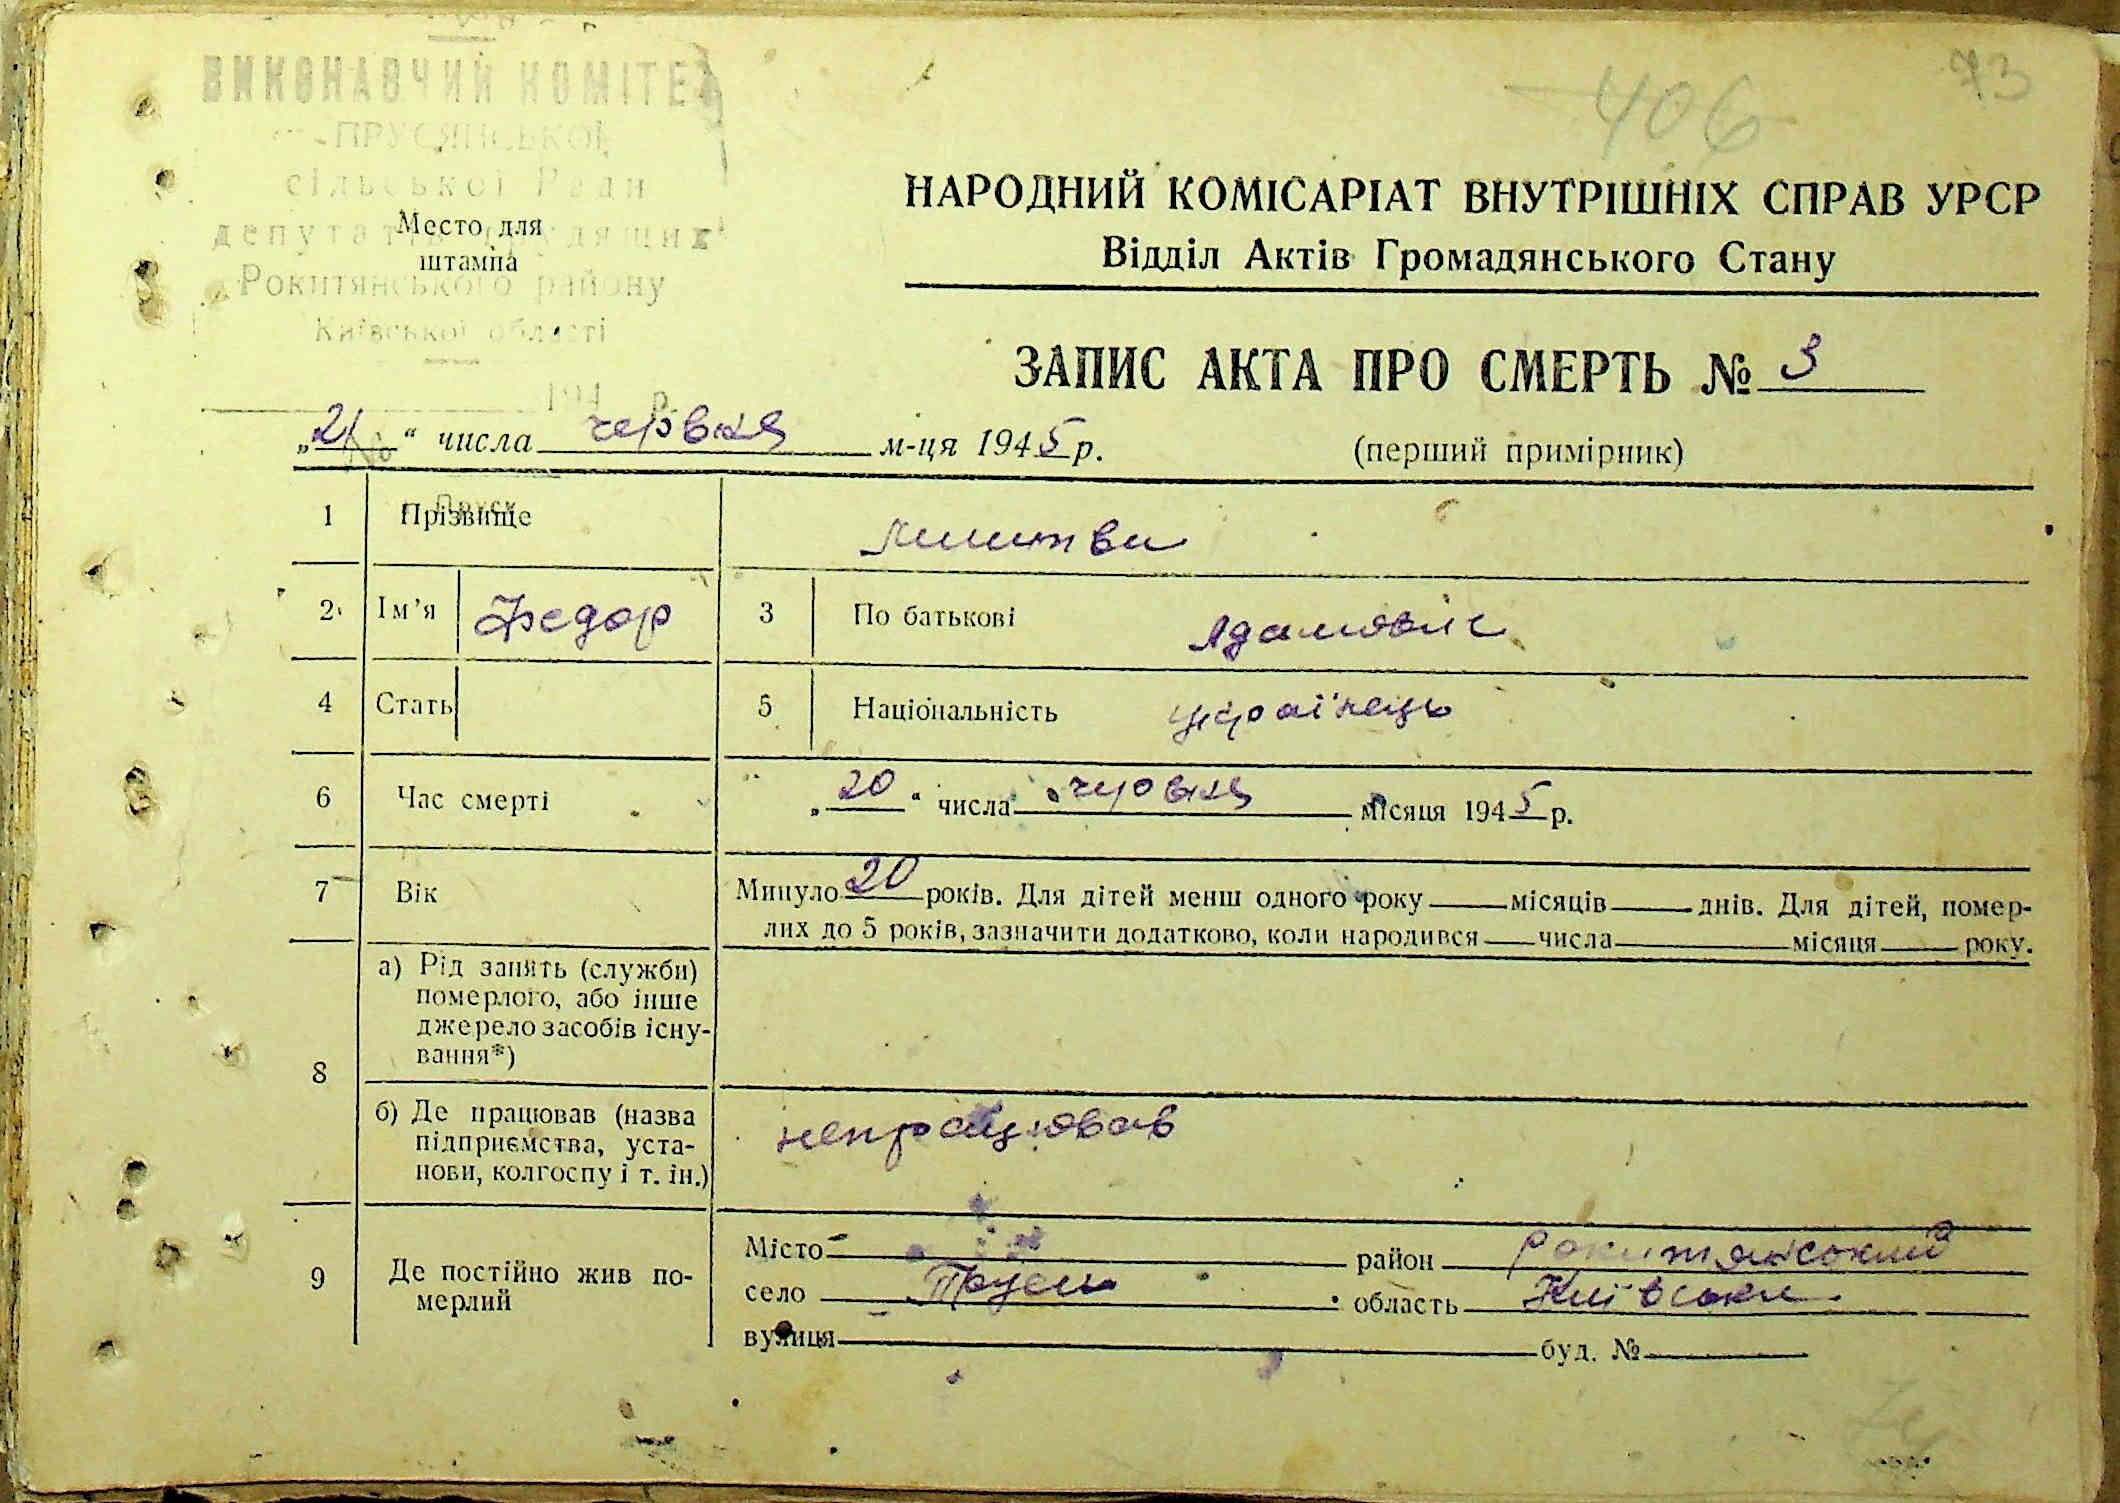 73
406
ВИКОНАВЧИЙ КОМІТЕ
ПРУСЯНСЬКОЇ
сільської Ради
депутатів трудящих
Рокитянського району
Київської області
194 р.
№
Место для
штампа
НАРОДНИЙ КОМІСАРІАТ ВНУТРІШНІХ СПРАВ УРСР
Відділ Актів Громадянського Стану
ЗАПИС АКТА ПРО СМЕРТЬ № 3
„21“ числа червня м-ця 1945 р. (перший примірник)
1 Прізвище
2 Ім’я Федор 3 По батькові Адамовіч
4 Стать 5 Національність українець
6 Час смерті „20“ числа червня місяця 1945 р.
7 Вік Минуло 20 років. Для дітей менш одного року місяців днів. Для дітей, помер-
лих до 5 років, зазначити додатково, коли народився числа місяця року.
8 а) Рід занять (служби)
померлого, або інше
джерело засобів існу-
вання*)
б) Де працював (назва
підприємства, уста-
нови, колгоспу і т. ін.)
непрацював
9 Де постійно жив по-
мерлий
Місто район Рокитянський
село Пруси область Київська
вулиця буд. №